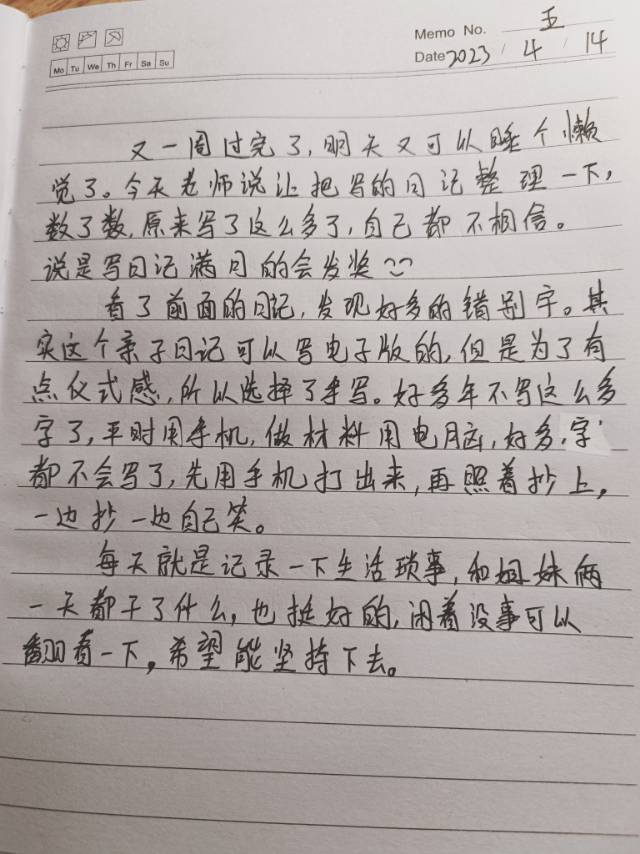 Memo No. 五
Mo Tu We Th Fr Sa Su
Date 2023 / 4 / 14
又一周过完了，明天又可以睡个懒
觉了。今天老师说让把写的日记整理一下，
数了数，原来写了这么多了，自己都不相信。
说是写日记满月的会发奖
看了前面的日记，发现好多的错别字。其
实这个亲子日记可以写电子版的，但是为了有
点仪式感，所以选择了手写。好多年不写这么多
字了，平时用手机，做材料用电脑，好多字
都不会写了，先用手机打出来，再照着抄上，
一边抄一边自己笑。
每天就是记录一下生活琐事，和姐妹俩
一天都干了什么，也挺好的，闲着没事可以
翻看一下，希望能坚持下去。